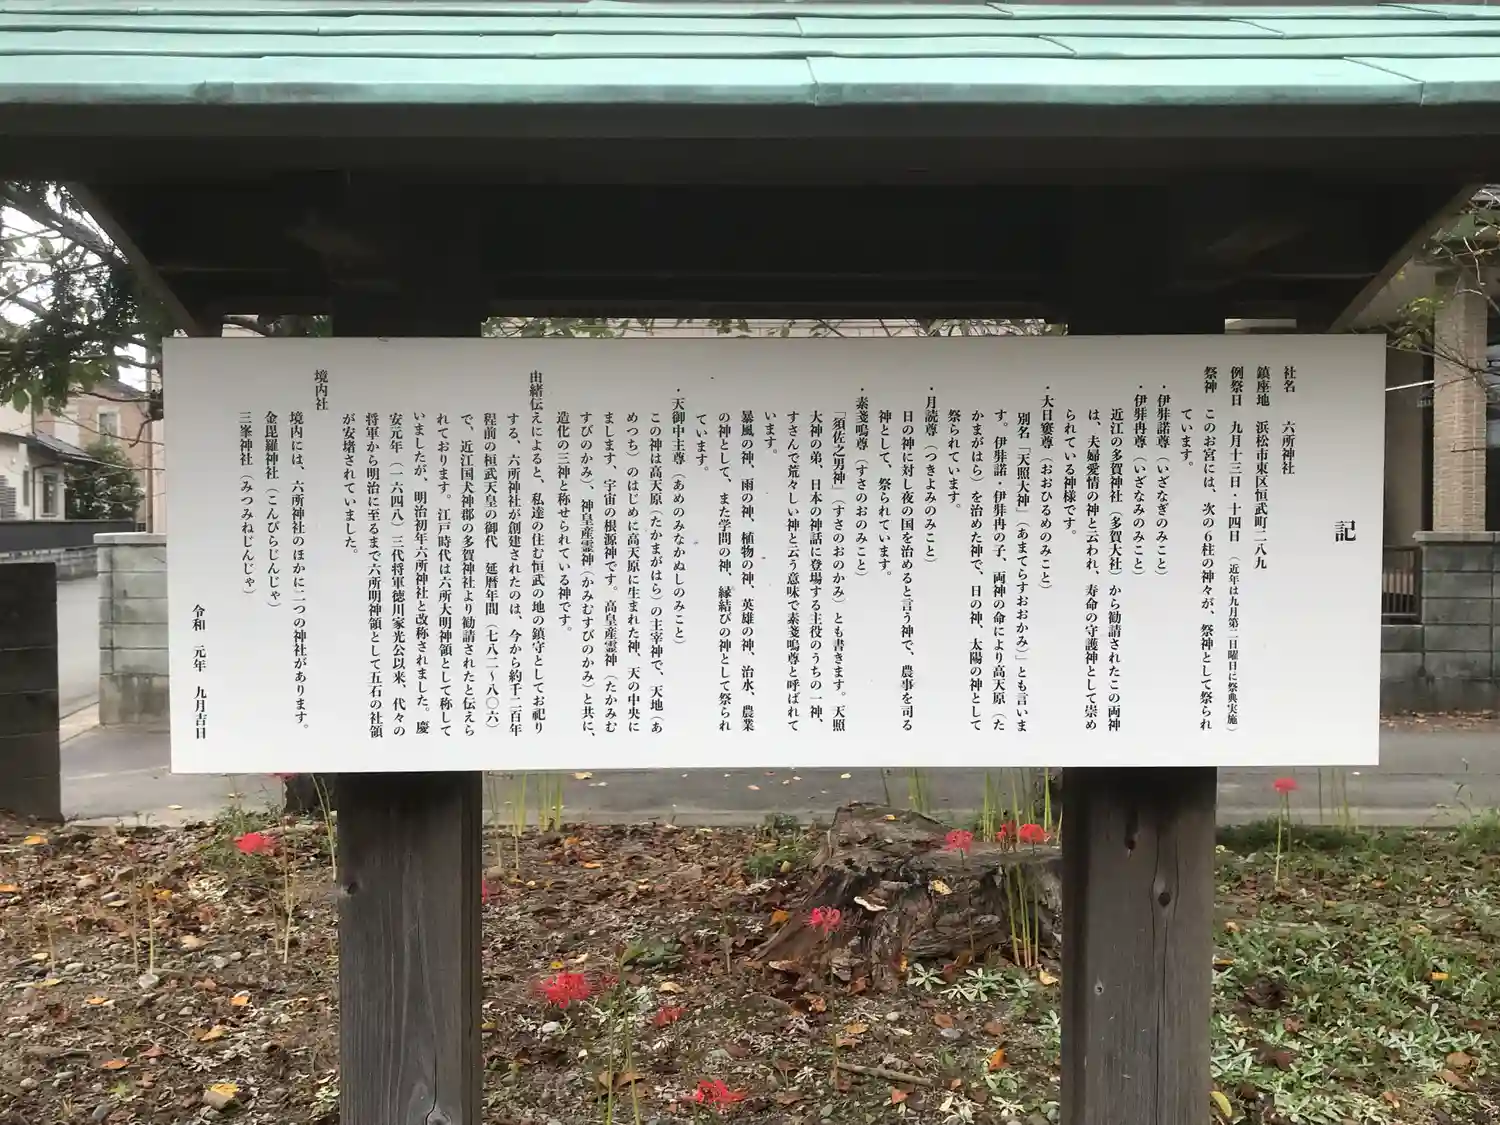 記
社名　六所神社
鎮座地　浜松市東区恒武町二八九
例祭日　九月十三日・十四日　（近年は九月第二日曜日に祭典実施）
祭神　このお宮には、次の６柱の神々が、祭神として祭られ
ています。
・伊弉諾尊（いざなぎのみこと）
・伊弉冉尊（いざなみのみこと）
近江の多賀神社（多賀大社）から勧請されたこの両神
は、夫婦愛情の神と云われ、寿命の守護神として崇め
られている神様です。
・大日孁尊（おおひるめのみこと）
別名「天照大神」（あまてらすおおかみ）とも言いま
す。伊弉諾・伊弉冉の子、両神の命により高天原（た
かまがはら）を治めた神で、日の神、太陽の神として
祭られています。
・月読尊（つきよみのみこと）
日の神に対し夜の国を治めると言う神で、農事を司る
神として、祭られています。
・素戔嗚尊（すさのおのみこと）
「須佐之男神」（すさのおのかみ）とも書きます。天照
大神の弟、日本の神話に登場する主役のうちの一神、
すさんで荒々しい神と云う意味で素戔嗚尊と呼ばれて
います。
暴風の神、雨の神、植物の神、英雄の神、治水、農業
の神として、また学問の神、縁結びの神として祭られ
ています。
・天御中主尊（あめのみなかぬしのみこと）
この神は高天原（たかまがはら）の主宰神で、天地（あ
めつち）のはじめに高天原に生まれた神、天の中央に
まします、宇宙の根源神です。高皇産霊神（たかみむ
すびのかみ）、神皇産霊神（かみむすびのかみ）と共に、
造化の三神と称せられている神です。
由緒　伝えによると、私達の住む恒武の地の鎮守としてお祀り
する、六所神社が創建されたのは、今から約千二百年
程前の桓武天皇の御代　延暦年間（七八二～八〇六）
で、近江国犬神郡の多賀神社より勧請されたと伝えら
れております。江戸時代は六所大明神領として称して
いましたが、明治初年六所神社と改称されました。慶
安元年（一六四八）三代将軍徳川家光公以来、代々の
将軍から明治に至るまで六所明神領として五石の社領
が安堵されていました。
境内社
境内には、六所神社のほかに二つの神社があります。
金毘羅神社（こんぴらじんじゃ）
三峯神社（みつみねじんじゃ）
令和　元年　九月吉日